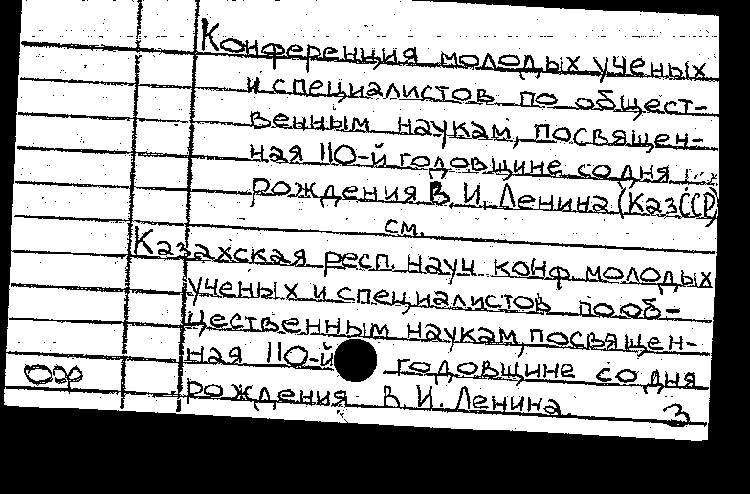 Конференция молодых ученых
и специалистов по общест-
венным наукам, посвящен-
ная 110-й годовщине со дня
рождения В. И. Ленина (КазССР)
см.
Казахская респ. науч конф. молодых
ученых и специалистов по об-
щественным наукам, посвящен-
ная 110-й годовщине со дня
рождения В. И. Ленина.
ОФ
3